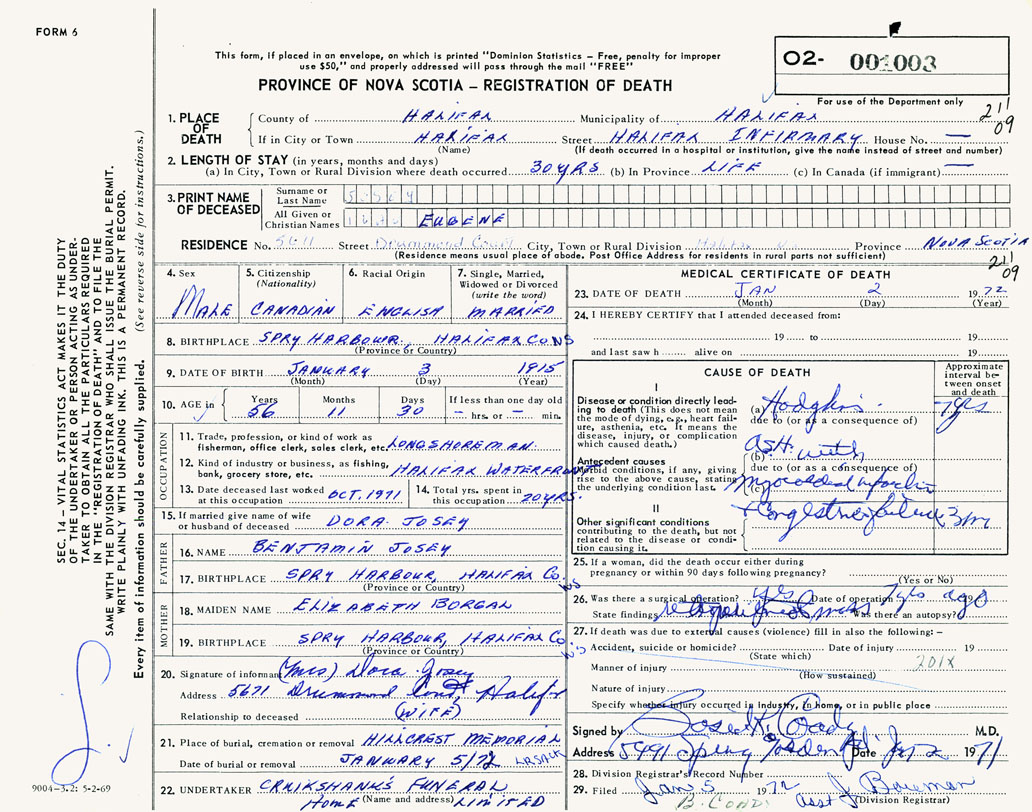 FORM 6
This form, if placed in an envelope, on which is printed "Dominion Statistics – Free, penalty for improper
use $50," and properly addressed will pass through the mail "FREE"
PROVINCE OF NOVA SCOTIA – REGISTRATION OF DEATH
O2- 001003
For use of the Department only
211
09
SEC. 14 – VITAL STATISTICS ACT MAKES IT THE DUTY
OF THE UNDERTAKER OR PERSON ACTING AS UNDER-
TAKER TO OBTAIN ALL THE PARTICULARS REQUIRED
IN THE "REGISTRATION OF DEATH" AND TO FILE THE
SAME WITH THE DIVISION REGISTRAR WHO SHALL ISSUE THE BURIAL PERMIT.
WRITE PLAINLY WITH UNFADING INK. THIS IS A PERMANENT RECORD.
Every item of information should be carefully supplied. (See reverse side for instructions.)
1. PLACE OF DEATH County of HALIFAX Municipality of HALIFAX
If in City or Town HALIFAX Street HALIFAX INFIRMARY House No. —
(Name) (If death occurred in a hospital or institution, give the name instead of street and number)
2. LENGTH OF STAY (in years, months and days)
(a) In City, Town or Rural Division where death occurred 30 YRS (b) In Province LIFE (c) In Canada (if immigrant) —
3. PRINT NAME OF DECEASED Surname or Last Name
All Given or Christian Names EUGENE
RESIDENCE No. Street Drummond Court City, Town or Rural Division Halifax Province NOVA SCOTIA
(Residence means usual place of abode. Post Office Address for residents in rural parts not sufficient)
211
09
4. Sex 5. Citizenship (Nationality) 6. Racial Origin 7. Single, Married, Widowed or Divorced (write the word)
MALE CANADIAN ENGLISH MARRIED
8. BIRTHPLACE SPRY HARBOUR, HALIFAX CO NS
(Province or Country)
9. DATE OF BIRTH JANUARY 3 1915
(Month) (Day) (Year)
10. AGE in Years Months Days If less than one day old
56 11 30 – hrs. or – min.
OCCUPATION
11. Trade, profession, or kind of work as
fisherman, office clerk, sales clerk, etc. LONGSHOREMAN
12. Kind of industry or business, as fishing,
bank, grocery store, etc. HALIFAX WATERFRONT
13. Date deceased last worked
at this occupation OCT. 1971 14. Total yrs. spent in
this occupation 20 YRS.
15. If married give name of wife
or husband of deceased DORA JOSEY
FATHER
16. NAME BENJAMIN JOSEY
17. BIRTHPLACE SPRY HARBOUR, HALIFAX Co. NS
(Province or Country)
MOTHER
18. MAIDEN NAME ELIZABETH BORGAL
19. BIRTHPLACE SPRY HARBOUR, HALIFAX Co. N.S
(Province or Country)
20. Signature of informant (Mrs) Dora Josey
Address 5671 Drummond Court Halifax
Relationship to deceased (WIFE)
21. Place of burial, cremation or removal HILLCREST MEMORIAL
Date of burial or removal JANUARY 5/72
22. UNDERTAKER CRUIKSHANKS FUNERAL
HOME (Name and address) LIMITED
9004-3.2: 5-2-69
MEDICAL CERTIFICATE OF DEATH
23. DATE OF DEATH JAN 2 1972
(Month) (Day) (Year)
24. I HEREBY CERTIFY that I attended deceased from:
19 to 19
and last saw h alive on 19
CAUSE OF DEATH
Approximate interval be- tween onset and death
I
Disease or condition directly lead-
ing to death (This does not mean
the mode of dying, e.g., heart fail-
ure, asthenia, etc. It means the
disease, injury, or complication
which caused death.)
(a) Hodgkins 7 yrs
due to (or as a consequence of)
(b) ASH. with
due to (or as a consequence of)
Antecedent causes
Morbid conditions, if any, giving
rise to the above cause, stating
the underlying condition last.
myocardial infarction
II
Other significant conditions
contributing to the death, but not
related to the disease or condi-
tion causing it.
+ Congestive failure 3 m
25. If a woman, did the death occur either during
pregnancy or within 90 days following pregnancy?
(Yes or No)
26. Was there a surgical operation? yes Date of operation 7 yrs ago 19
State findings Was there an autopsy?
27. If death was due to external causes (violence) fill in also the following: –
Accident, suicide or homicide? Date of injury 19
(State which)
201X
Manner of injury
(How sustained)
Nature of injury
Specify whether injury occurred in Industry, in home, or in public place
Signed by M.D.
Address 5991 Spring Garden Rd Date Jan 2 1971
28. Division Registrar's Record Number
29. Filed Jan 5 1972
(Division Registrar)